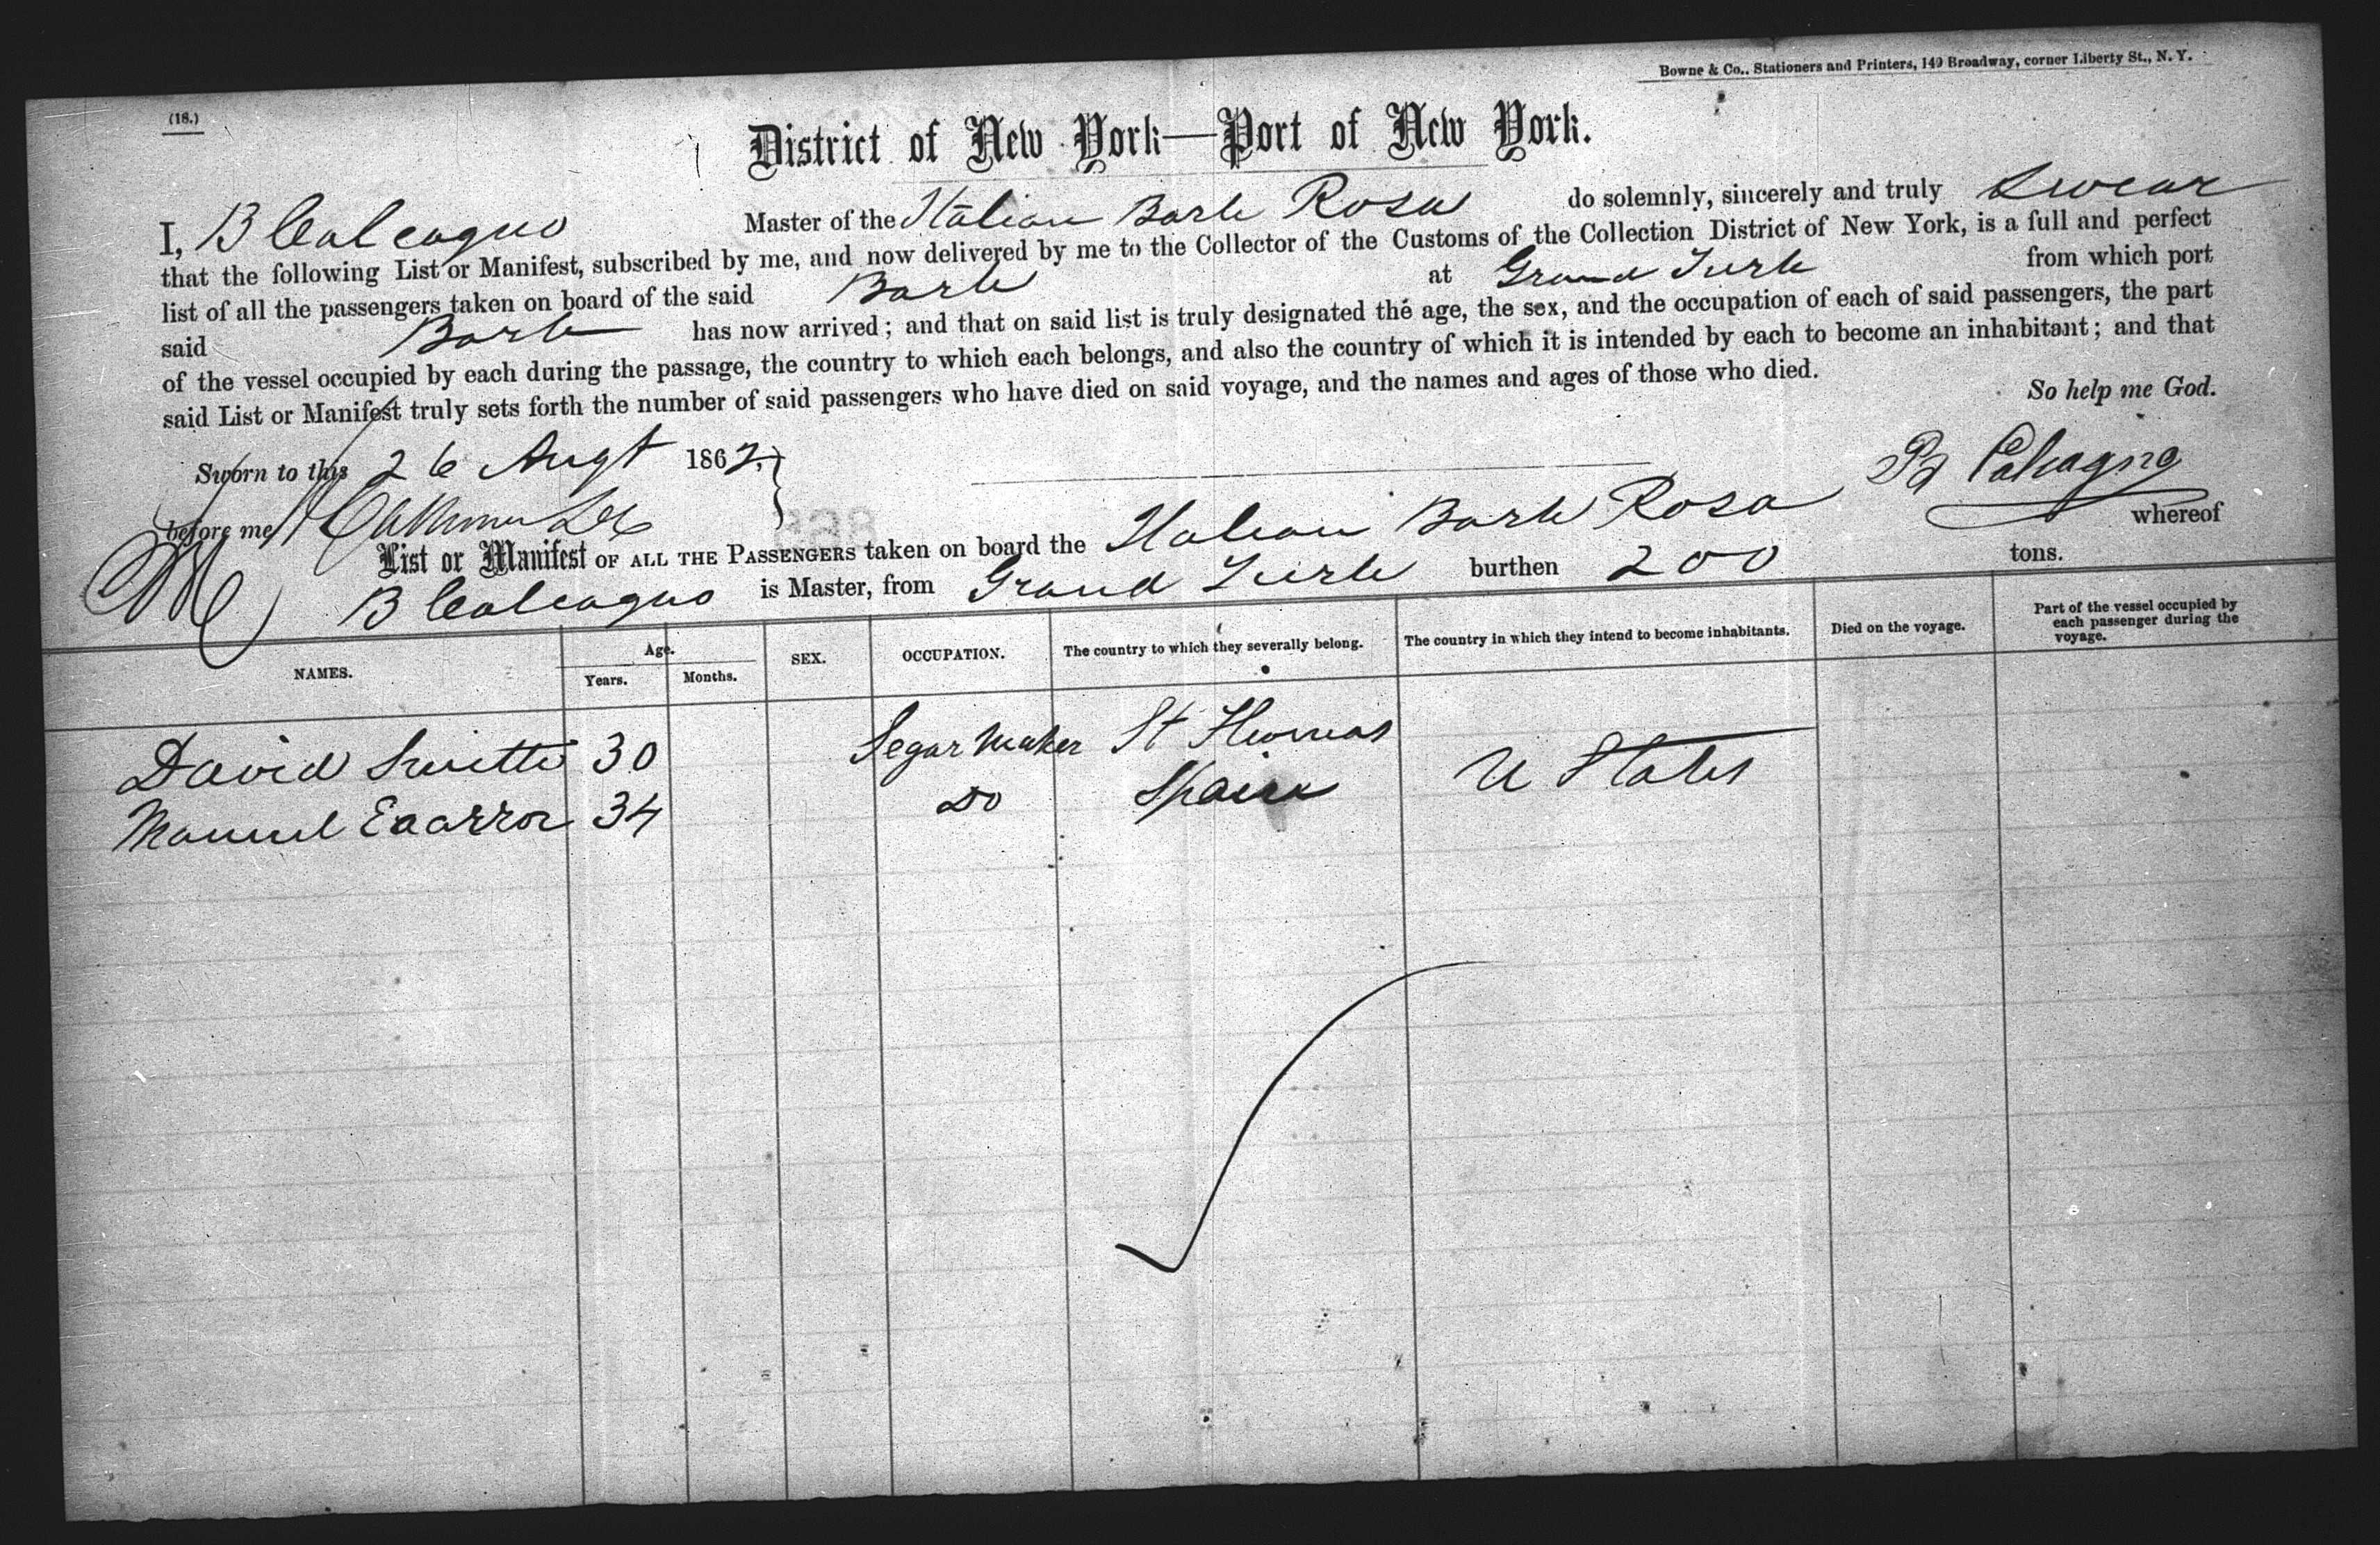 Bowne & Co., Stationers and Printers, 149 Broadway, corner Liberty St., N. Y.
(18.)
District of New York—Port of New York.
I, B Calcagno Master of the Italian Bark Rosa do solemnly, sincerely and truly swear
that the following List or Manifest, subscribed by me, and now delivered by me to the Collector of the Customs of the Collection District of New York, is a full and perfect
list of all the passengers taken on board of the said Bark at Grand Turk from which port
said Bark has now arrived; and that on said list is truly designated the age, the sex, and the occupation of each of said passengers, the part
of the vessel occupied by each during the passage, the country to which each belongs, and also the country of which it is intended by each to become an inhabitant; and that
said List or Manifest truly sets forth the number of said passengers who have died on said voyage, and the names and ages of those who died.
So help me God.
Sworn to this 26 Augt 1862.
B Calcagno
before me
List or Manifest OF ALL THE PASSENGERS taken on board the Italian Bark Rosa whereof
B Calcagno is Master, from Grand Turk burthen 200 tons.
NAMES. Age. Years. Months. SEX. OCCUPATION. The country to which they severally belong. The country in which they intend to become inhabitants. Died on the voyage. Part of the vessel occupied by each passenger during the voyage.
David 30 Segar Maker St Thomas
Manuel 34 Do Spain U States